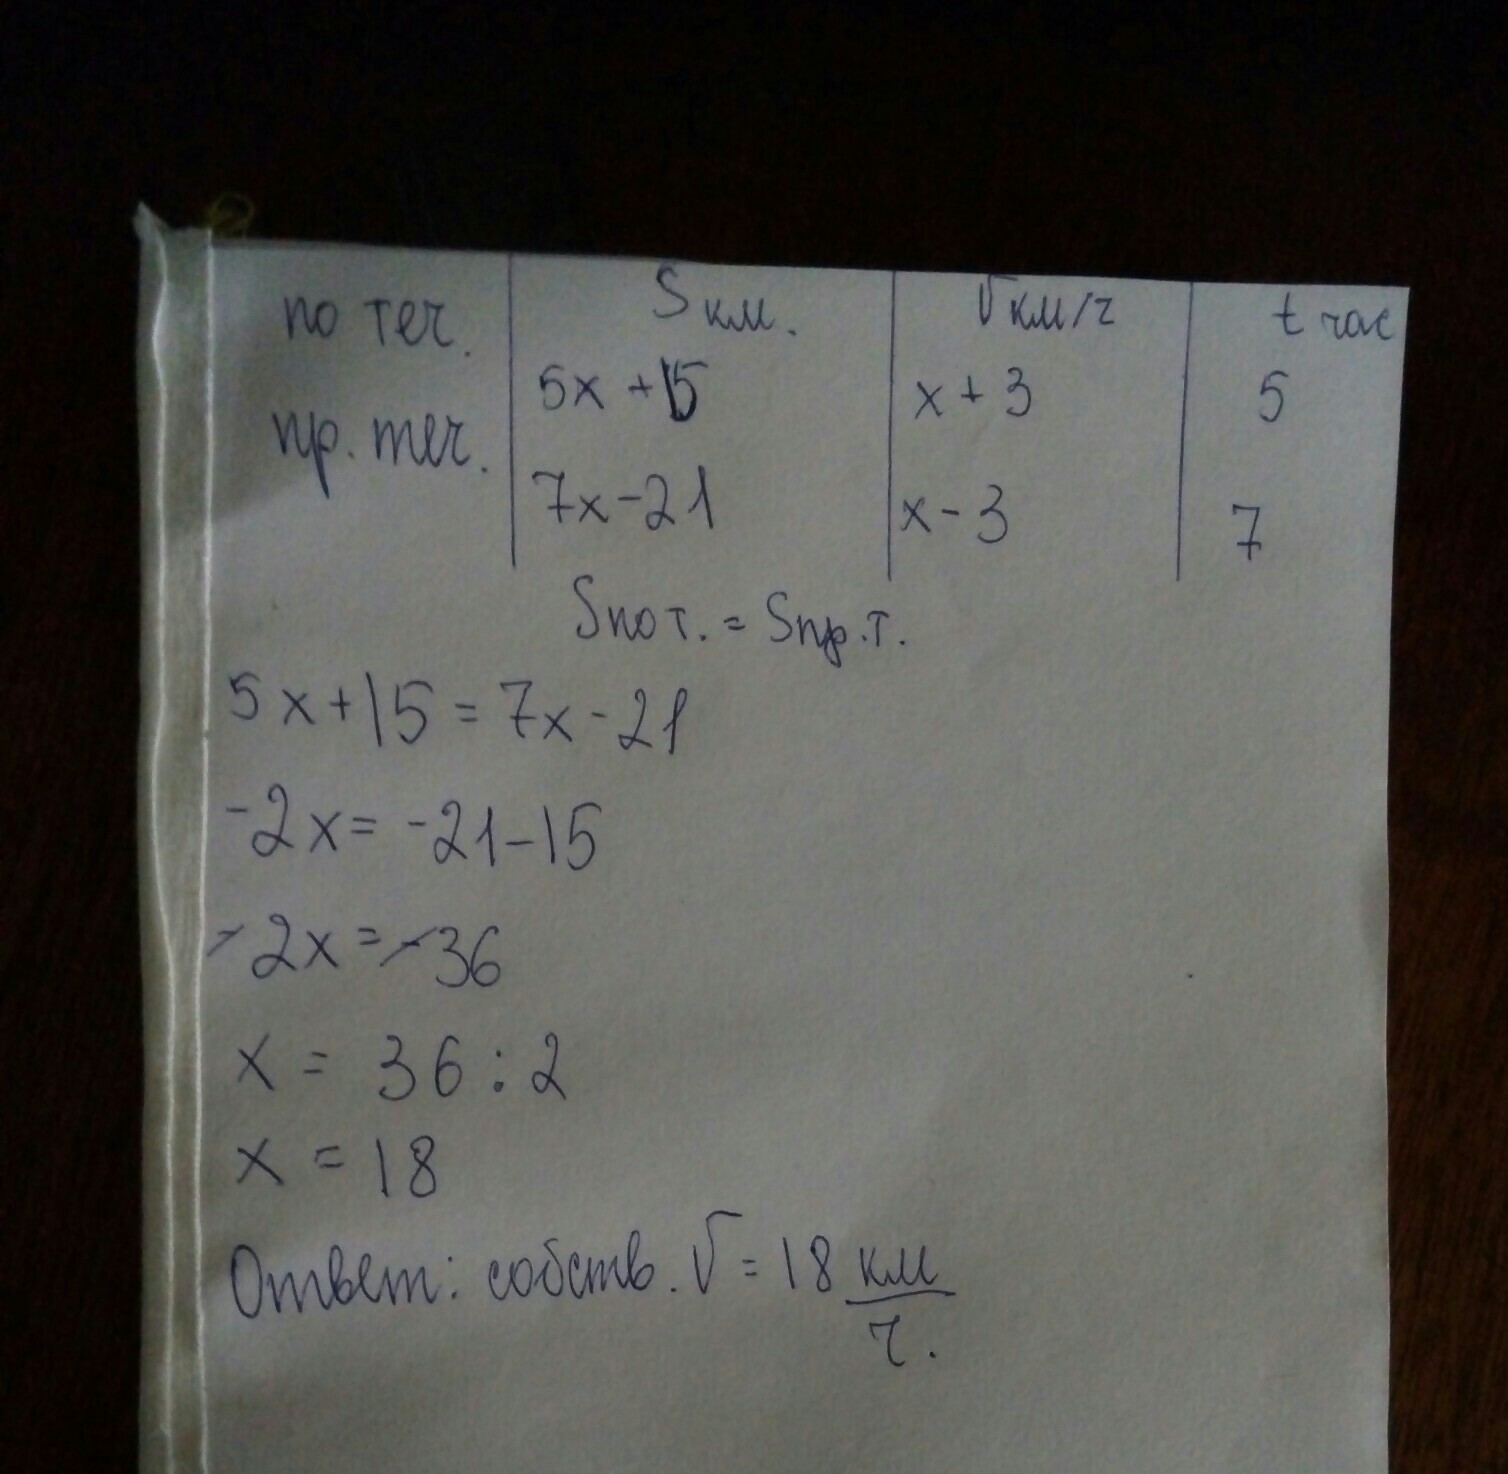 S км. V км/ч t час
по теч. 5x + 15 x + 3 5
пр. теч. 7x - 21 x - 3 7
Sпо т. = Sпр. т.
5x + 15 = 7x - 21
-2x = -21 - 15
-2x = -36
x = 36 : 2
x = 18
Ответ: собств. V = 18 км/ч.